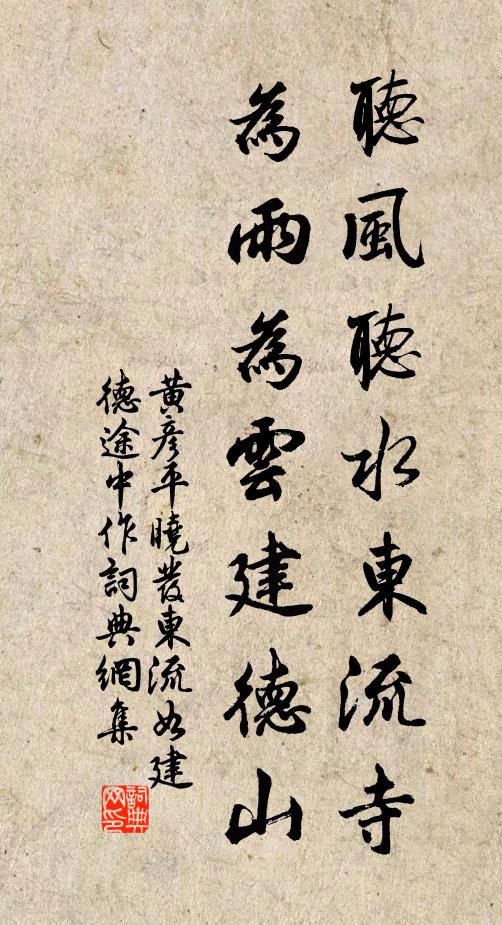 聽風聽水東流寺
為雨為雲建德山
黃彥平曉發東流如建
德途中作詞典網集
詞典網印